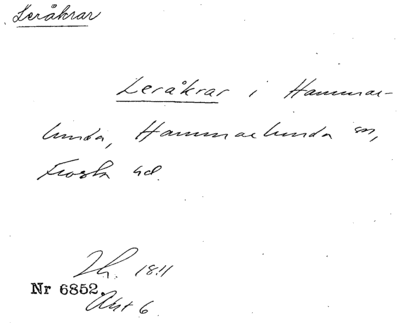 Leråkrar
Leråkrar i Hammar-
lunda, Hammarlunda sn,
Frosta hd.
Sh. 1811
Nr 6852.
Akt 6